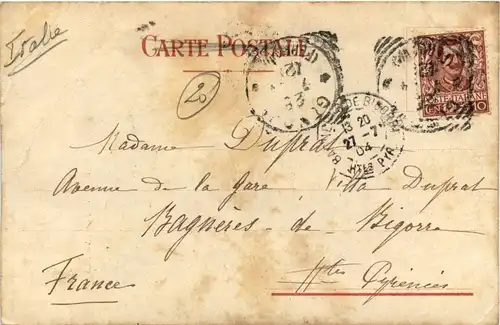 Italie
CARTE POSTALE
20
POSTE ITALIANE
10
GENOVA
BAGNERES DE BIGORRE
13 20
27 -7
04
HTES PYR.
Madame Duprat
Avenue de la Gare, Villa Duprat
Bagnères - de - Bigorre
France Htes Pyrénées